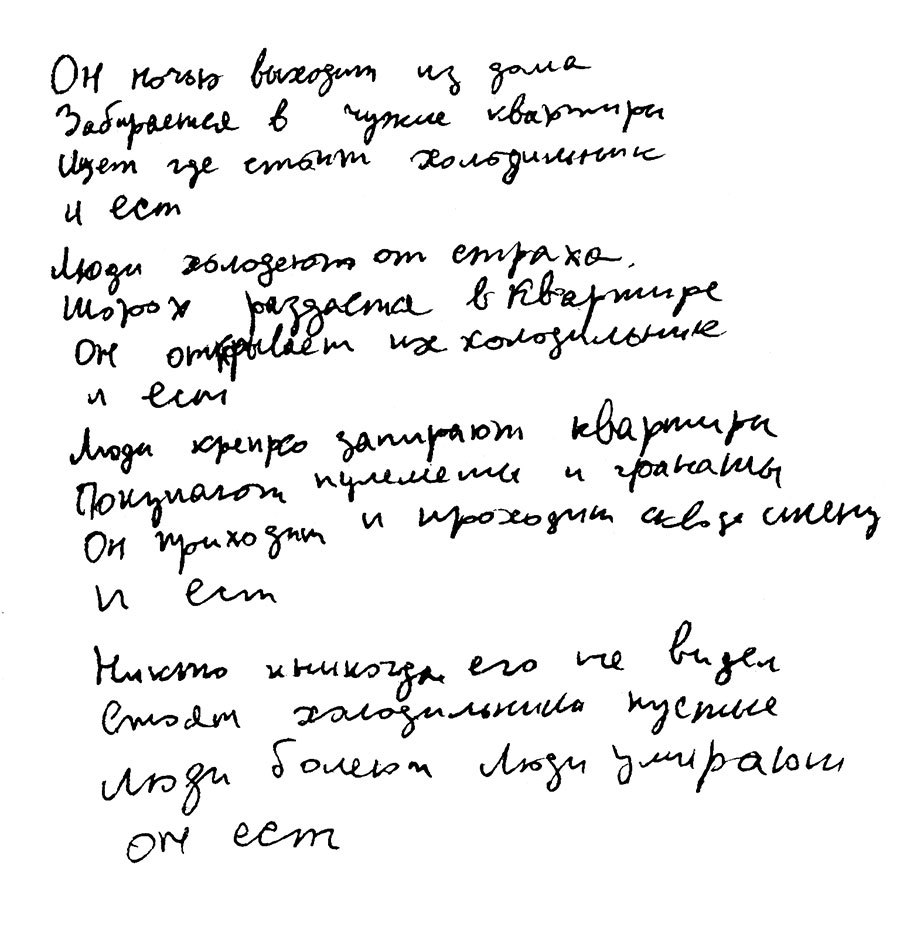 Он ночью выходит из дома
Забирается в чужие квартиры
Ищет где стоит холодильник
и ест
Люди холодеют от страха.
Шорох раздастся в квартире
Он открывает их холодильник
и ест
Люди крепко запирают квартиры
Покупают пулеметы и гранаты
Он приходит и проходит сквозь стену
И ест
Никто и никогда его не видел
Стоят холодильники пустые
Люди болеют Люди умирают
он ест